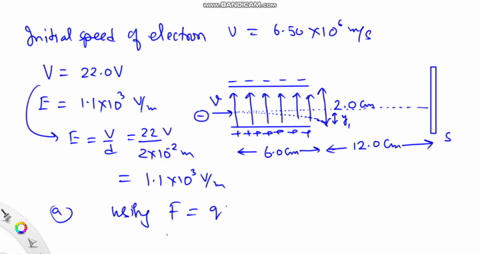 WWW.BANDICAM.COM
Initial speed of electron υ = 6.50 × 10⁶ m/s
V = 22.0V
E = 1.1×10³ V/m
E = V/d = 22 V / 2×10⁻² m
= 1.1×10³ V/m
υ
− − − − −
2.0cm
y₁
+ + + + + +
6.0cm
12.0cm
S
(a) using F = q